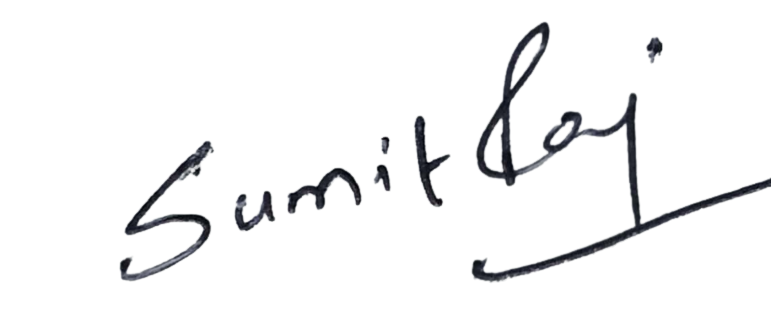 Sumit Raj